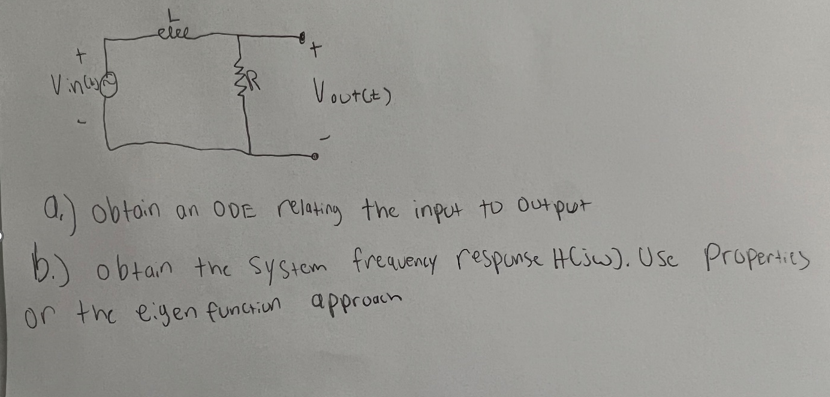 L
+
Vin(t)
-
R
+
Vout(t)
-
a.) obtain an ODE relating the input to output
b.) obtain the system frequency response H(jw). Use Properties
or the eigen function approach